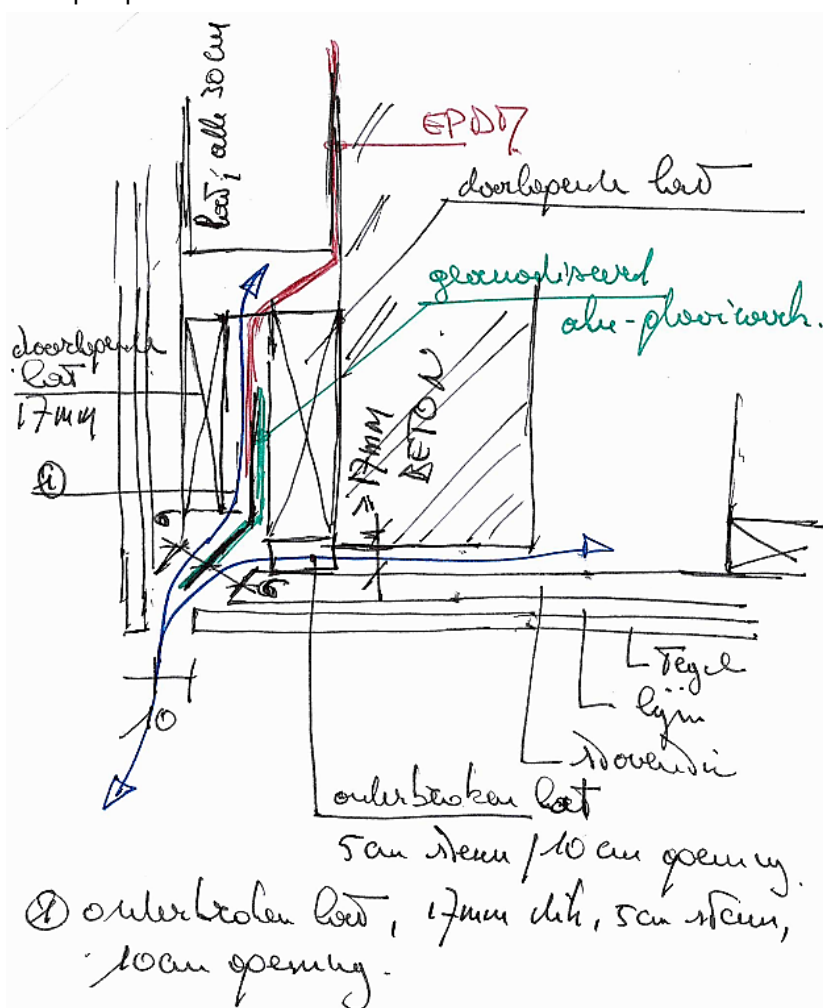 lat, alle 30 cm
EPDM
doorlopende lat
geanodiseerd
alu-
doorlopende
lat
17mm
①
≥17mm
BETON.
9
9
10
Tegel
lijm
onderbroken lat
5 cm steun / 10 cm opening.
① onderbroken lat, 17mm dik, 5 cm steun,
10 cm opening.